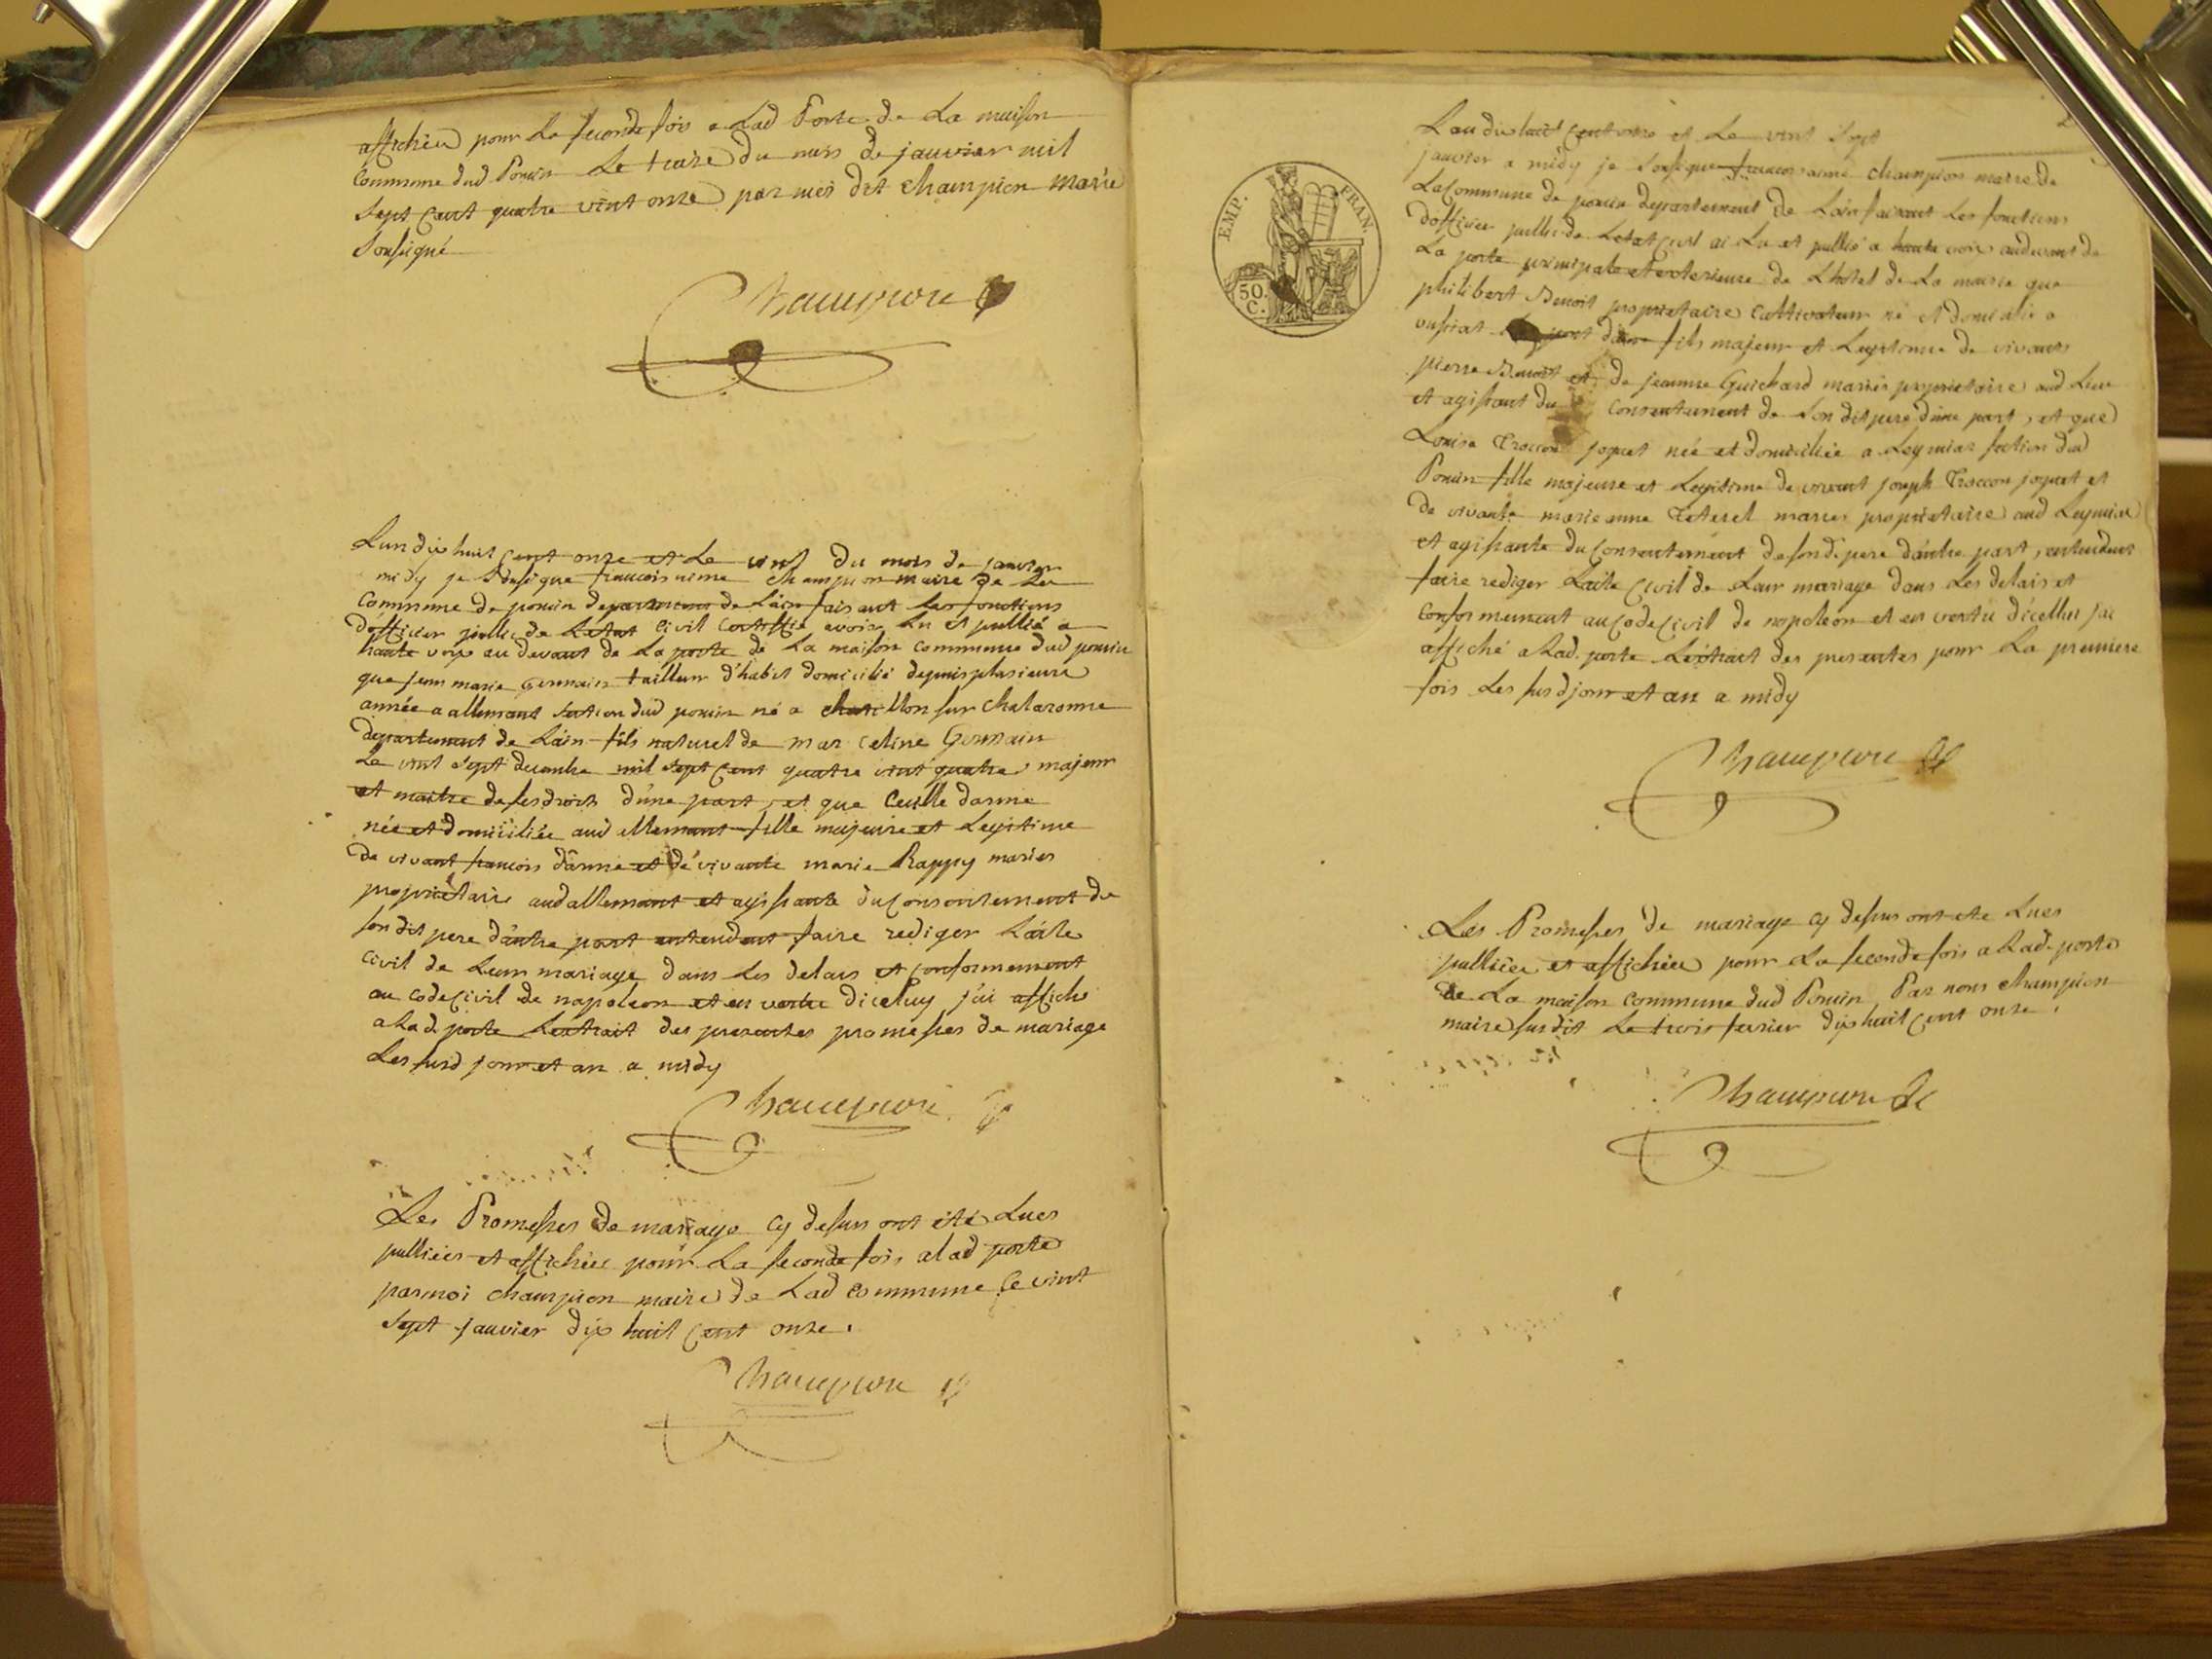 affichées pour La seconde fois a Lad Porte de La maison
Commune dud Poncin Le treize du mois de janvier mil
sept Cent quatre vint onze par moi dit Champion Maire
Soussigné
Champion
Lan dix huit Cent onze et Le vint du mois de janvier
midy je soussigné francois aimé Champion maire de La
Commune de poncin departement de Lain faisant les fonctions
dofficier public de Letat Civil Certiffie avoir Lu et publié a
haute voix au devant de La porte de La maison Commune dud poncin
que jean marie Germain tailleur d'habit domicilié depuis plusieurs
année a allemant section dud poncin né a chatillon sur chalaronne
departement de Lain fils naturel de mar celine Germain
Le vint sept decembre mil sept Cent quatre vint quatre majeur
et maitre de ses droits d'une part, et que Cecille darme
née et domiciliée aud allemant fille majeure et Legitime
de vivant francois darme et de vivante marie Rappy mariés
proprietaire aud allemant et agissante du Consentement de
son dit pere dautre part entendent faire rediger Lacte
Civil de Leur mariage dans Les delais et conformement
au Code Civil de napoleon et en vertu diceluy j'ai affiché
a Lad. porte Lextrait des presentes promesses de mariage
Les susd jour et an a midy
Champion
Les Promesses de mariage cy dessus ont été Lues
publiées et affichées pour La seconde fois a lad porte
par moi Champion maire de Lad Commune Ce vint
sept janvier dix huit Cent onze.
Champion
EMP. FRAN.
50.
C.
Lan dix huit Cent onze et Le vint sept
janvier a midy je soussigné francois aimé Champion maire de
La Commune de poncin departement de Lain faisant Les fonctions
dofficier public de Letat Civil ai Lu et publié a haute voix au devant de
La porte principale et exterieure de Lhotel de La mairie que
philibert Benoit proprietaire Cultivateur né et domicilié a
fils majeur et Legitime de vivants
pierre Benoit et de jeanne Guichard mariés proprietaire aud Lieu
et agissant du Consentement de son dit pere dune part, et que
Louise Troccon joquet née et domiciliée a Leymiat section dud
Poncin fille majeure et Legitime de vivant joseph Troccon joquet et
de vivante marie anne mariés proprietaire aud Leymiat
et agissante du Consentement de sond. pere dautre part, entendent
faire rediger Lacte Civil de Leur mariage dans Les delais et
conformement au Code Civil de napoleon et en vertu dicelluy jai
affiché a Lad. porte Lextrait des presentes pour La premiere
fois Les susd jour et an a midy
Champion
Les Promesses de mariage cy dessus ont ete Lues
publiées et affichées pour La seconde fois a Lad. porte
de La maison Commune dud Poncin Par nous Champion
maire susdit Le trois fevrier dix huit Cent onze.
Champion